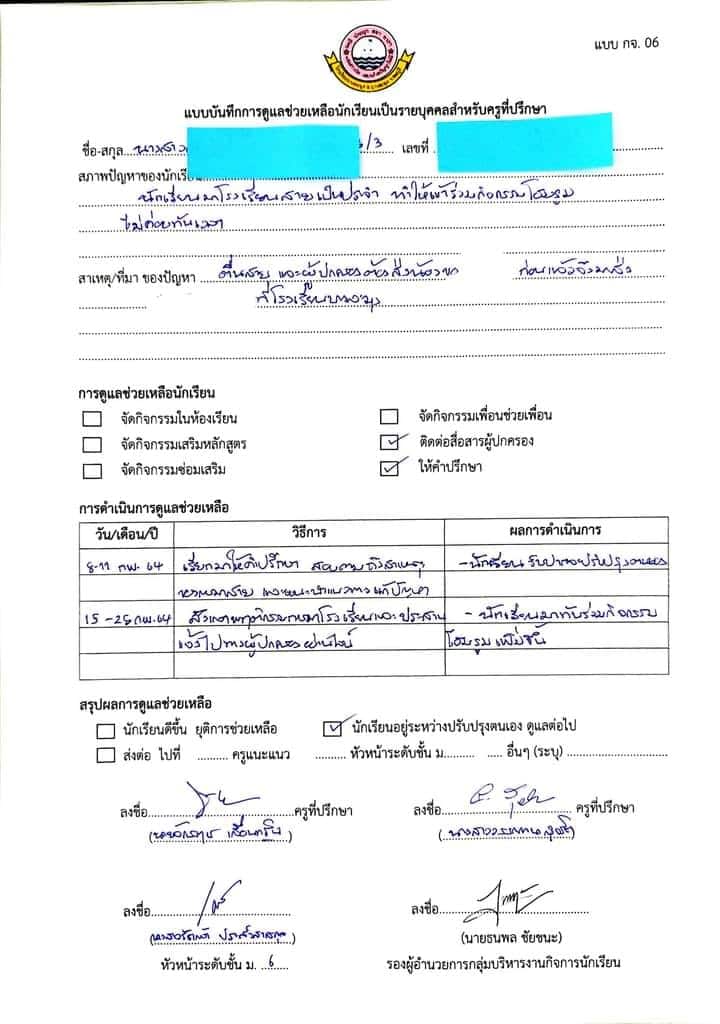 แบบ กจ. 06
แบบบันทึกการดูแลช่วยเหลือนักเรียนเป็นรายบุคคลสำหรับครูที่ปรึกษา
ชื่อ-สกุล นางสาว /3 เลขที่
สภาพปัญหาของนักเรียน
นักเรียนมาโรงเรียนสายเป็นประจำ ทำให้เข้าร่วมกิจกรรมโฮมรูม
ไม่ค่อยทันเวลา
สาเหตุ/ที่มา ของปัญหา ตื่นสาย และผู้ปกครองต้องส่งน้อง ก่อนแล้วจึงมาส่ง
ที่โรงเรียน
การดูแลช่วยเหลือนักเรียน
จัดกิจกรรมในห้องเรียน จัดกิจกรรมเพื่อนช่วยเพื่อน
จัดกิจกรรมเสริมหลักสูตร ติดต่อสื่อสารผู้ปกครอง
จัดกิจกรรมซ่อมเสริม ให้คำปรึกษา
การดำเนินการดูแลช่วยเหลือ
วัน/เดือน/ปี วิธีการ ผลการดำเนินการ
8-11 กพ. 64 เรียกมาให้คำปรึกษา สอบถามถึงสาเหตุ - นักเรียนรับปากจะปรับปรุงตนเอง
ของการมาสาย และแนะนำแนวทางแก้ปัญหา
15-25 กพ. 64 สังเกตพฤติกรรมการมาโรงเรียนและประสาน - นักเรียนมาทันร่วมกิจกรรม
แจ้งไปทางผู้ปกครองผ่านไลน์ โฮมรูมเพิ่มขึ้น
สรุปผลการดูแลช่วยเหลือ
นักเรียนดีขึ้น ยุติการช่วยเหลือ นักเรียนอยู่ระหว่างปรับปรุงตนเอง ดูแลต่อไป
ส่งต่อ ไปที่ .......... ครูแนะแนว .......... หัวหน้าระดับชั้น ม.......... ..... อื่นๆ (ระบุ) ..............................
ลงชื่อ ครูที่ปรึกษา ลงชื่อ ครูที่ปรึกษา
ลงชื่อ ลงชื่อ
(นายธนพล ชัยชนะ)
หัวหน้าระดับชั้น ม. 6 รองผู้อำนวยการกลุ่มบริหารงานกิจการนักเรียน